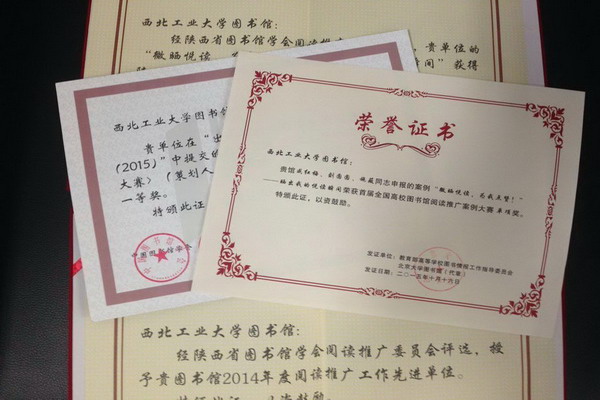 西北工业大学图书馆：
经陕西省图书馆学会阅读推广
贵单位的
“微晒悦读
”获得
西北工业大学图书馆
贵单位在“出
(2015)”中提交的
大赛》（策划人
一等奖。
特颁此证
中国图书馆学会
荣誉证书
西北工业大学图书馆：
同志申报的案例“微晒悦读，为我点赞！”
——晒出我的悦读瞬间荣获首届全国高校图书馆阅读推广案例大赛单项奖。
特颁此证，以资鼓励。
发证单位：教育部高等学校图书情报工作指导委员会
北京大学图书馆（代章）
发证日期：二〇一五年十月十六日
西北工业大学图书馆：
经陕西省图书馆学会阅读推广委员会评选，授
予贵图书馆2014年度阅读推广工作先进单位。